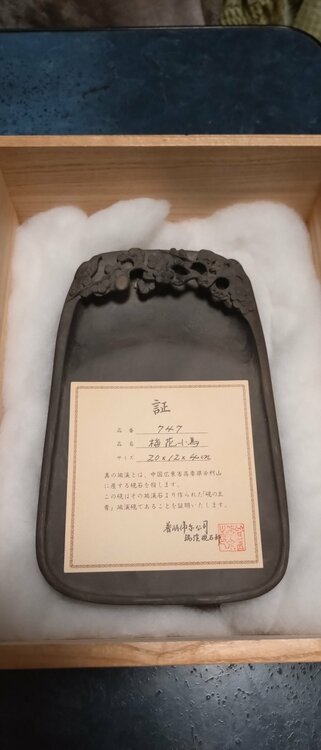 証
品番 747
品名 梅花小鳥
サイズ 20×12×4cm
真の端溪とは、中国広東省高要県斧柯山
に産する硯石を指します。
この硯はその端溪石より作られた「硯の王
者」端溪硯であることを証明いたします。
公司
端溪硯石部